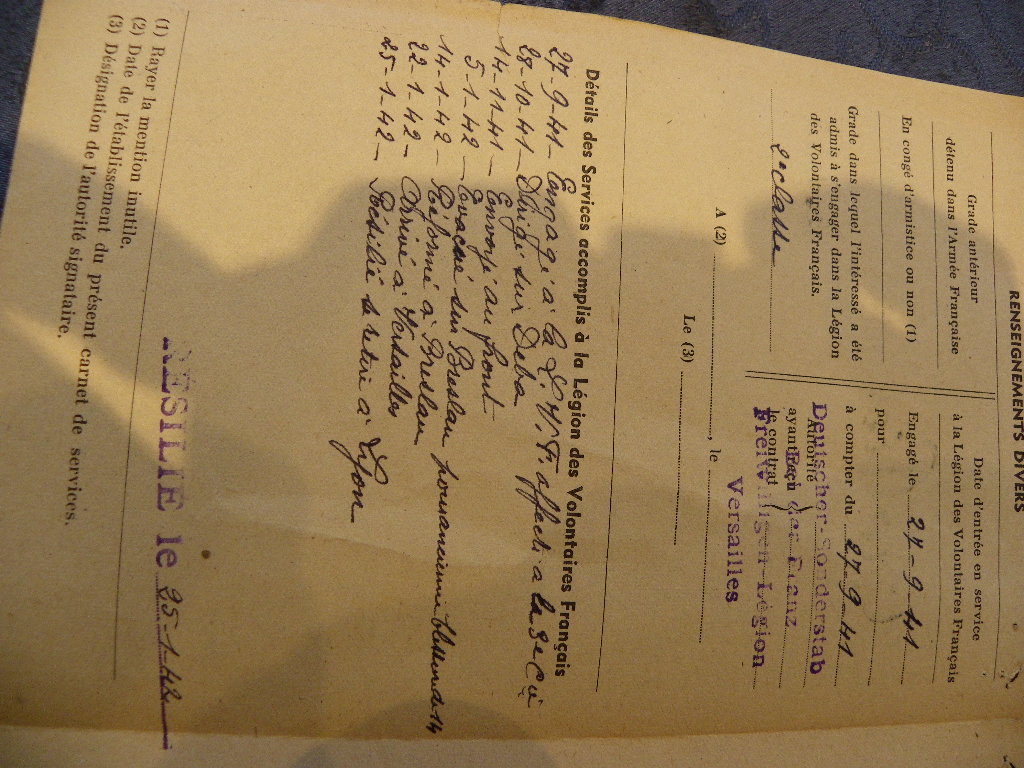 RENSEIGNEMENTS DIVERS
Grade antérieur
détenu dans l'Armée Française
En congé d'armistice ou non (1)
Grade dans lequel l'intéressé a été
admis à s'engager dans la Légion
des Volontaires Français.
2e classe
Date d'entrée en service
à la Légion des Volontaires Français
Engagé le 27-9-41
pour
à compter du 27-9-41
Deutscher-Sonderstab
Autorité
ayant reçu der Franz
le contrat
Freiwilligen-Légion
Versailles
A (2) , le
Le (3)
Détails des Services accomplis à la Légion des Volontaires Français
27-9-41 — Engagé à la L.V.F. affecté à la 3e Cie
28-10-41 — Dirigé sur Deba
14-11-41 — Envoyé au front
5-1-42 — Evacué sur Breslau
14-1-42 — Réformé à Breslau
22-1-42 — Arrivé à Versailles
25-1-42 — Résilié se retire à Lyon
RÉSILIÉ le 25-1-42
(1) Rayer la mention inutile.
(2) Date de l'établissement du présent carnet de services.
(3) Désignation de l'autorité signataire.